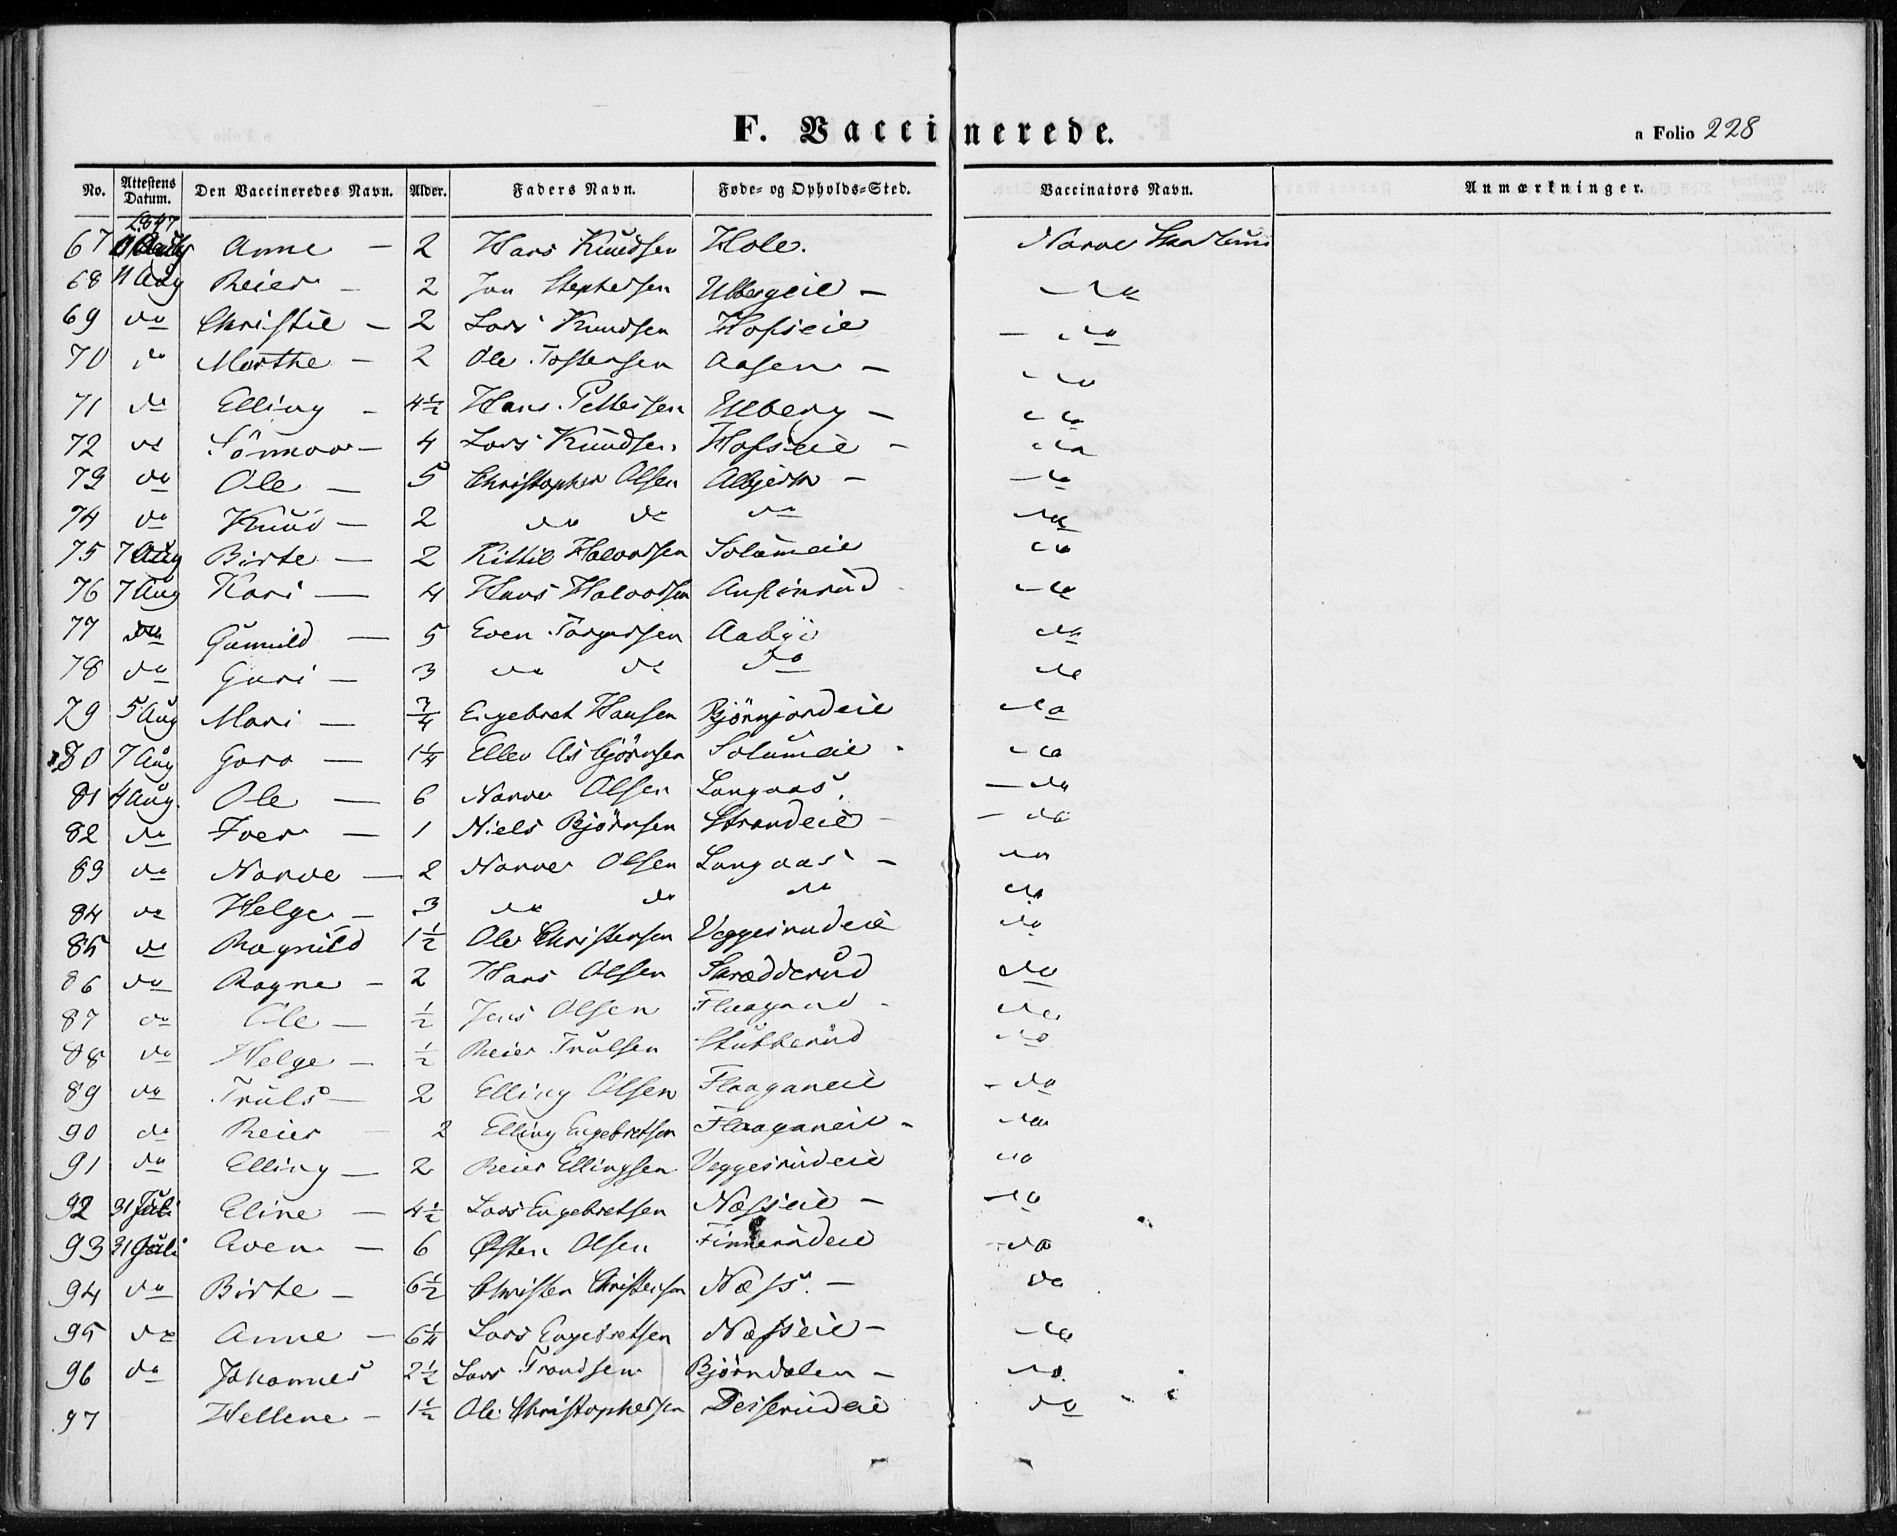 F. Vaccinerede.
a Folio 228
No. Attestens Datum. Den Vaccineredes Navn. Alder. Faders Navn. Føde- og Opholds-Sted. Vaccinators Navn. Anmærkninger.
1847
67 Anne — 2 Hans Knudsen Hole. Narve
68 11 Aug Reier — 2 Jon Stephensen — do
69 do Christie — 2 Lars Knudsen Hofseie — do
70 do Marthe — 2 Ole Tostensen Aasen — do
71 do Elling — 4½ Hans Pettersen Ulberg — do
72 do Sønnov — 4 Lars Knudsen Hofseie — do
73 do Ole — 5 Christopher Olsen — do
74 do Knud — 2 do do do do
75 7 Aug Birte — 2 Kittil Halvorsen Solumeie do
76 7 Aug Kari — 4 Hans Halvorsen do
77 do Gunnild — 5 Even Torgersen Aabyi do
78 do Guri — 3 do do do do
79 5 Aug Mari — ¾ Engebret Hansen Bjørnjordeie do
80 7 Aug Goro — 1¼ Ellev Asbjørnsen Solumeie do
81 4 Aug. Ole — 6 Narve Olsen Langaas. — do
82 do Iver — 1 Niels Bjørnsen Strandeie — do
83 do Narve — 2 Narve Olsen Langaas — do
84 do Helge — 3 do do do do
85 do Ragnild 1½ Ole Christensen Veggesrudeie do
86 do Ragne — 2 Hans Olsen Skrædderud do
87 do Ole — ½ Jens Olsen do
88 do Helge — ½ Reier Trulsen Stubberud do
89 do Truls — 2 Elling Olsen Flaaganeie — do
90 do Reier 2 Elling Engebretsen Flaaganeie — do
91 do Elling — 2 Reier Ellingsen Veggesrudeie do
92 31 Juli Eline — 4½ Lars Engebretsen Næsseie — do
93 31 Juli Aven — 6 Østen Olsen Finnerudeie do
94 do Birte — 6½ Christen Christensen Næss. — do
95 do Anne — 6¼ Lars Engebretsen Næsseie — do
96 do Johannes 2½ Lars Trondsen Bjørndalen — do.
97 Hellene — 1½ Ole Christophersen do